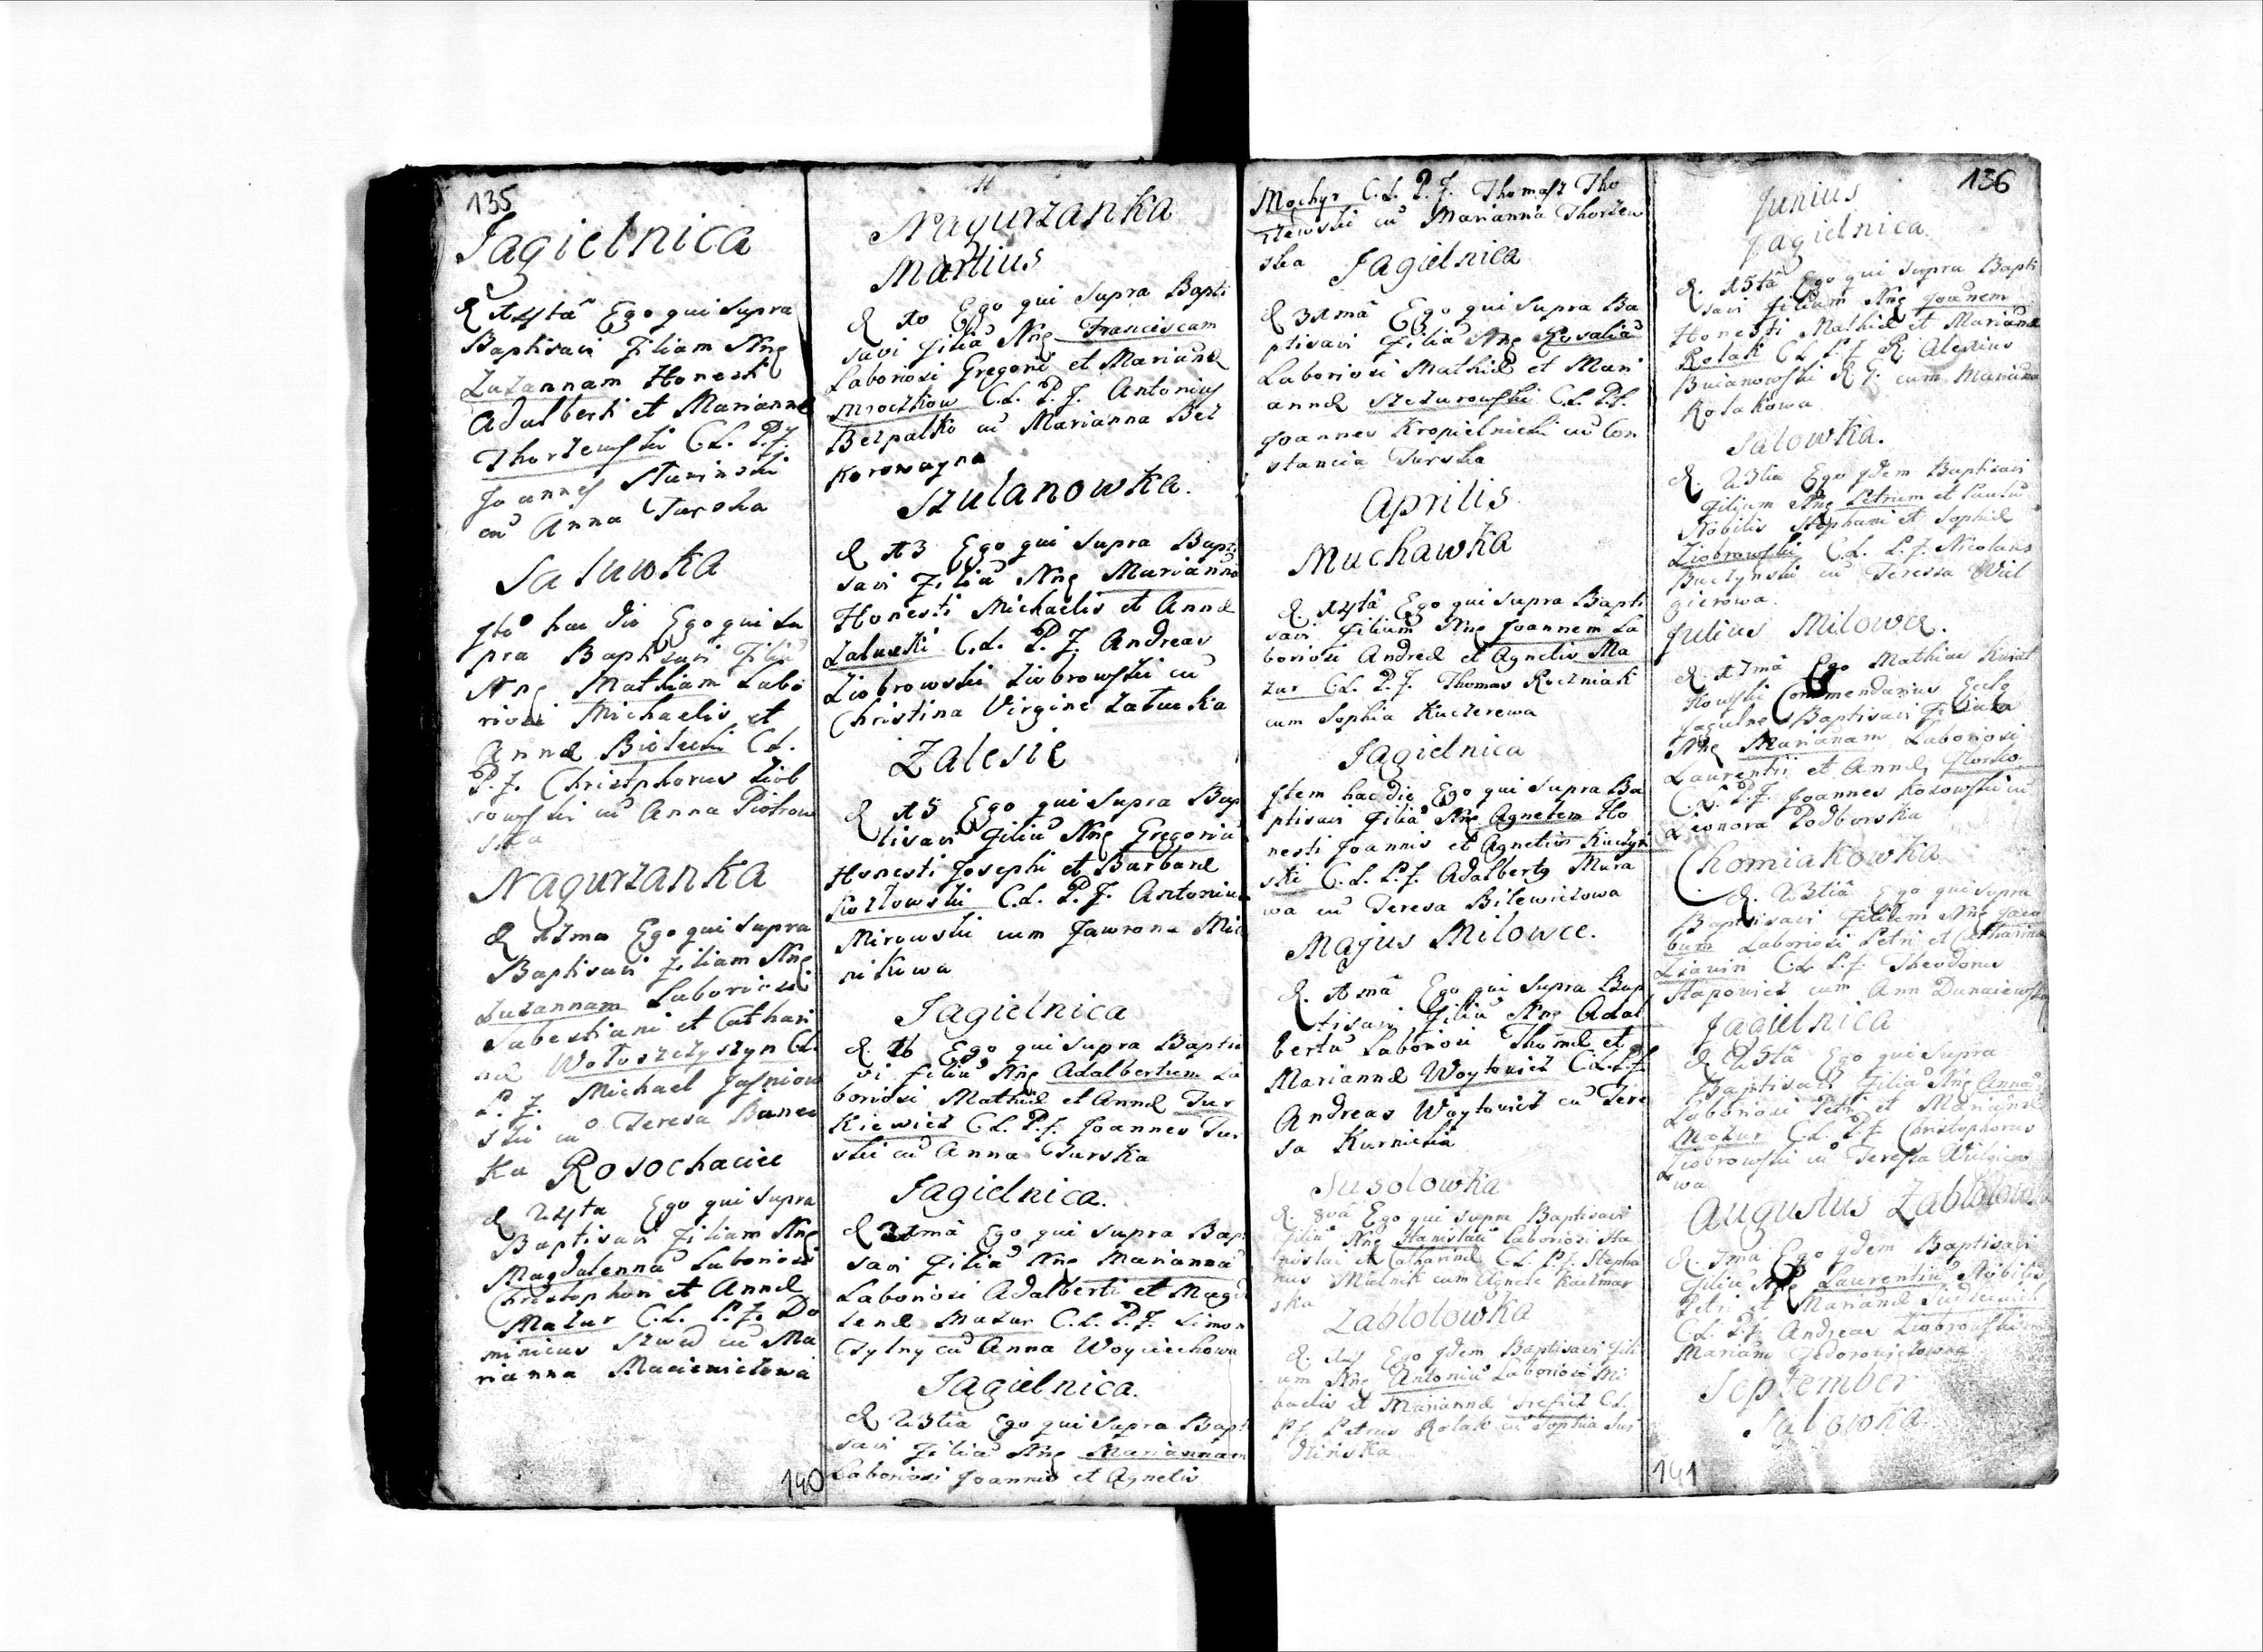 135
Jagielnica
d 14tâ Ego qui supra
Baptisavi Filiam Nne
Zuzannam Honesti
Adalberti et Mariannæ
Thorzewski C.L. P.F.
Joannes Slavinski
cu Anna Turska
Saluwka
hac die Ego qui su
pra Baptisavi Filiu
Nne Mathiam Labo
riosi Michaelis et
Annæ C.L.
P.F. Christphorus Ziob
rowski cu Anna Piotrow
ska
Nagurzanka
d 17ma Ego qui supra
Baptisavi Filiam Nne
Zuzannam Laboriosi
Sabestiani et Cathari
næ Wołoszczyszyn C.L.
P.F. Michael Jasniow
ski cu Teresa Banec
ka Rosochaciec
d 24ta Ego qui supra
Baptisavi Filiam Nne
Magdalennã Laboriosi
Christophori et Annæ
Mazur C.L. P.F. Do
minicus Szwed cu Ma
rianna
140
Nagurzanka
Martius
d 10 Ego qui supra Bapti
savi filiã Nne Franciscam
Laboriosi Gregorii et Mariañæ
Mroczkow C.L. P.F. Antonius
Bezpalko cu Marianna Bez
korowayna
Szulanowka.
d 13 Ego qui supra Bapti
savi Filiã Nne Marianna
Honesti Michaelis et Annæ
Załuski C.L. P.F. Andreas
Ziobrowski Ziobrowski cu
Christina Virgine Załuska
Zalesie
d 15 Ego qui supra Bap
tisavi Filiu Nne Gregoriu
Honesti Josephi et Barbaræ
Kozłowski C.L. P.F. Antonius
Mirowski cum Jawrona Mic
nikowa
Jagielnica
d. 16 Ego qui supra Baptisa
vi filiu Nne Adalbertum La
boriosi Mathiæ et Annæ Tur
kiewicz C.L. P.F. Joannes Tur
ski cu Anna Turska
Jagielnica.
d 21mâ Ego qui supra Bapti
savi Filiã Nne Mariannã
Laboriosi Adalberti et Magda
lenæ Mazur C.L. P.F. Simon
Czylny cu Anna Woyciechowa
Jagielnica.
d 23tia Ego qui supra Bapti
savi Filiã Nne Mariannam
Laboriosi Joannis et Agnetis
Mochyr C.L. P.F. Thomasz Tho
rzewski cu Marianna Thorzew
ska
Jagielnica
d 31mâ Ego qui supra Ba
ptisavi Filiã Nne Rosaliã
Laboriosi Mathiæ et Mari
annæ Szczurowski C.L. P.F.
Joannes Kropielnicki cu Con
stancia Turska
Aprilis
Muchawka
d. 14tâ Ego qui supra Bapti
savi Filium Nne Joannem La
boriosi Andreæ et Agnetis Ma
zur C.L. P.F. Thomas Roczniak
cum Sophia Kuczerewa
Jagielnica
hac die Ego qui supra Ba
ptisavi Filiã Nne Agnetem Ho
nesti Joannis et Agnetis Kuczyn
ski C.L. P.F. Adalberty Mura
wa cu Teresa Bilewiczowa
Majus Milowce.
d. 1mâ Ego qui supra Bap
tisavi Filiu Nne Adal
bertu Laboriosi Thomæ et
Mariannæ Woytowicz C.L. P.F.
Andreas Woytowicz cu Tere
sa Kurnicka
Susolowka
d. 8vâ Ego qui supra Baptisavi
Filiu Nne Stanislau Laboriosi Sta
nislai et Catharinæ C.L. P.F. Stepha
nus Malnik cum Agnete Kaczmar
ska
Zablotowka
d. Ego qdem Baptisavi Fili
um Nne Antoniu Laboriosi Mi
chaelis et Mariannæ C.L.
P.F. Petrus Rolak cu Sophia
136
Junius
Jagielnica
d. 15tâ Ego qui supra Bapti
savi Filium Nne Joañem
Honesti Mathiæ et Mariañæ
Rolak C.L. P.F. R. Alexius
Buianowski R.G. cum Mariana
Rolakowa
Salowka.
d. 23tia Ego qdem Baptisavi
Filium Nne Petrum et Paulu
Nobilis Stephani et Sophiæ
Ziobrowski C.L. P.F. Nicolaus
Buczynski cu Teressa Wiel
gierowa.
Julius Milowce.
d. 17mâ Ego Mathias Kwiat
kowski Commendarius Eccle
Jagielne s Baptisavi Filiam
Nne Marianam Laboriosi
Laurentii et Annæ
C.L. P.F. Joannes Kozowski cu
Leonora Podburska
Chomiakowka
d. 23tiâ Ego qui supra
Baptisavi Filium Nne Jaco
bum Laboriosi Petri et Catharinæ
C.L. P.F. Theodorus
Stapowicz cum Ann Dunaiewska
Jagielnica
d 25tâ Ego qui supra
Baptisavi Filiã Nne Annã
Laboriosi Petri et Mariañæ
Mazur C.L. P.F. Christophorus
Ziobrowski cu Teressa Wielgiero
wa
Augustus Zablotowka
d. 1mâ Ego qdem Baptisavi
Filiu Nne Laurentiu Nobilis
Petri et Mariañæ
C.L. P.F. Andreas Ziobrowski
Mariana Fedorowiczowna
September
Salowka
141